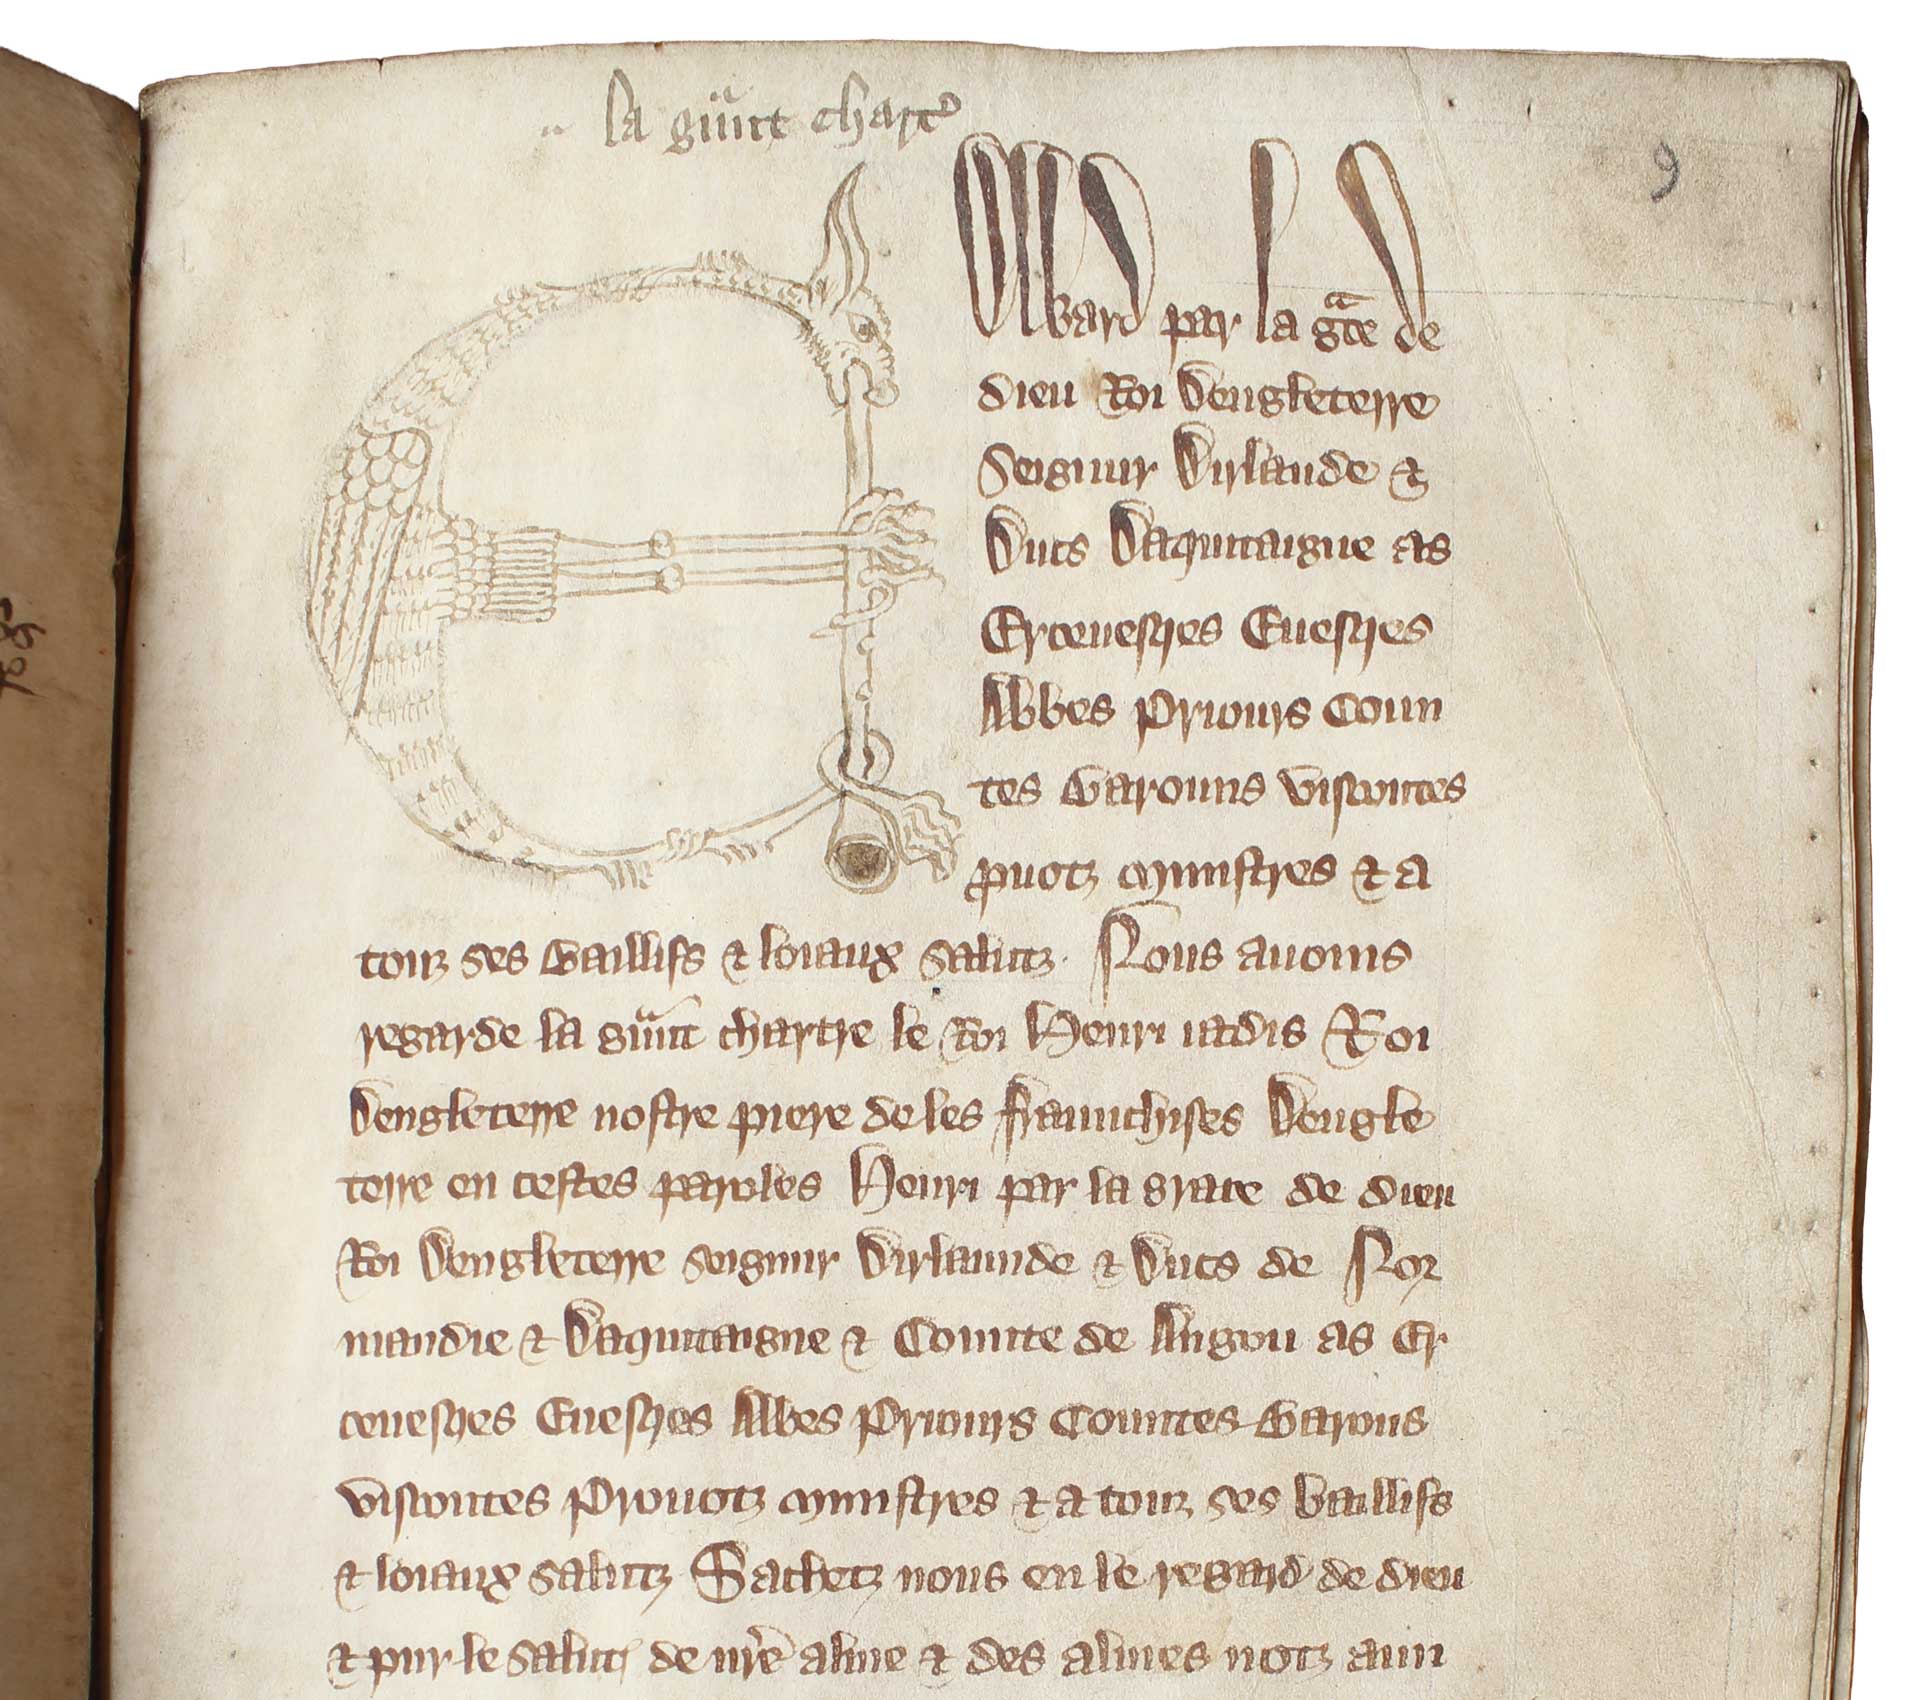 la g᷑unt chart᷑
9
Edward par la gᵃce de
dieu Roi Dengleterre
Seignur Dirlande &
Ducs Daquitaigne as
Erceuesqes Euesqes
Abbes Priours Coun
tes Barouns viscontes
puotz ministres & a
touz ses Baillifs & loiaux salutz. Nous auoms
regarde la g᷑unt chartre le Roi Henri iadis Roi
Dengleterre nostre piere de les fraunchises Dengle
terre en cestes paroles Henri par la grace de dieu
Roi Dengleterre seignur Dirlaunde & Ducs de Nor
mandie & Daquitaigne & Counte de Angou as Er
ceuesqes Euesqes Abbes Priours Countes Barons
viscontes Prouotz ministres & a touz ses baillifs
& loiaux salutz Sachetz nous en le regard de dieu
& pur le salutz de nr̄e alme & des almes notz aun